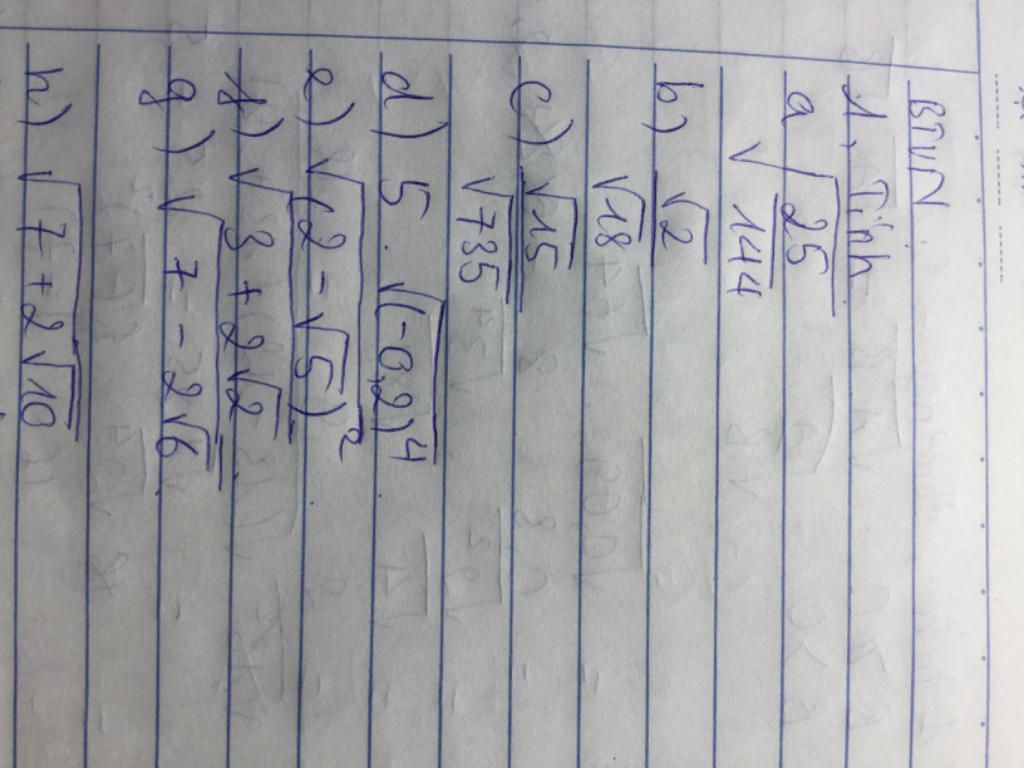 BTVN
1, Tính
a √25/144
b) √2/√18
c) √15/√735
d) 5 . √(-0,2)⁴
e) √(2 - √5)²
f) √3 + 2√2
g) √7 - 2√6
h) √7 + 2√10